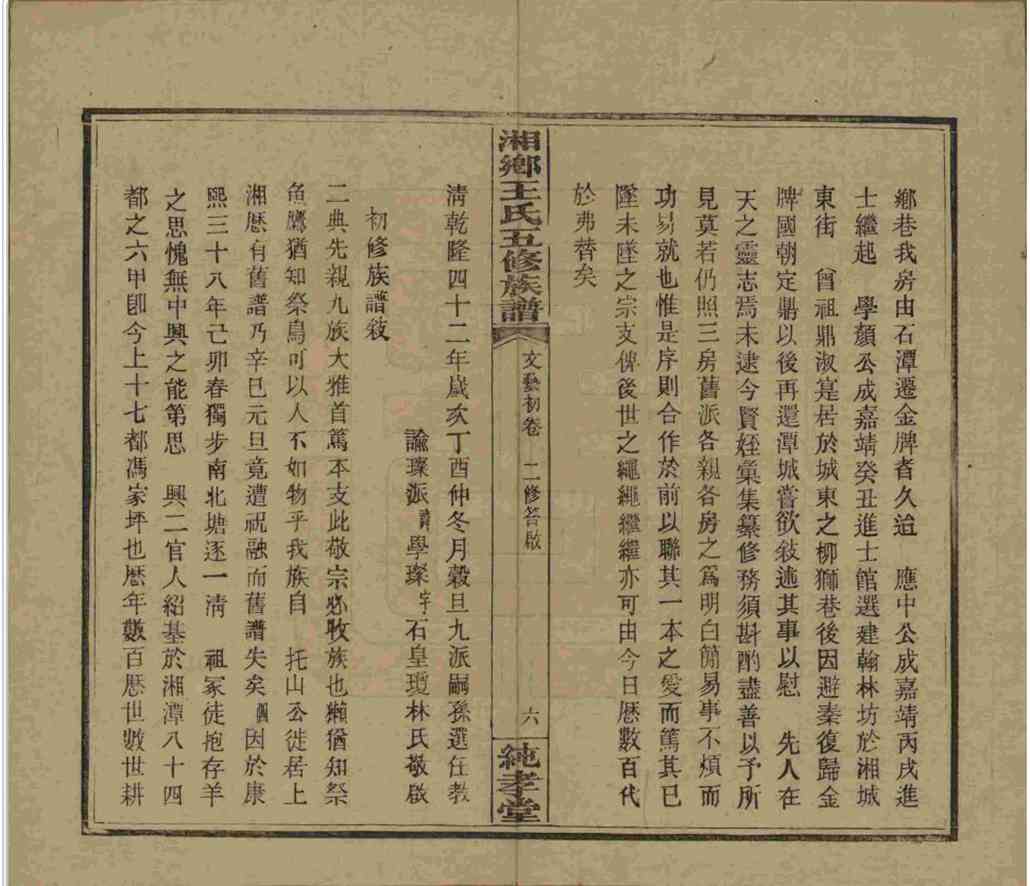 鄉巷我房由石潭遷金牌者久迨　應中公成嘉靖丙戌進
士繼起　學顏公成嘉靖癸丑進士館選建翰林坊於湘城
東街　曾祖鼎淑寔居於城東之柳獅巷後因避秦復歸金
牌國朝定鼎以後再還潭城嘗欲敍述其事以慰　先人在
天之靈志焉未逮今賢姪彙集纂修務須斟酌盡善以予所
見莫若仍照三房舊派各親各房之爲明白簡易事不煩而
功易就也惟是序則合作於前以聯其一本之愛而篤其已
墜未墜之宗支俾後世之繩繩繼繼亦可由今日歷數百代
於弗替矣
湘鄉王氏五修族譜
文藝初卷　二修答啟
六
純孝堂
淸乾隆四十二年歲次丁酉仲冬月穀旦九派嗣孫選任教
諭璨派諱學璨字石皇瓊林氏敬啟
初修族譜敍
二典先親九族大雅首篤本支此敬宗必收族也獺猶知祭
魚鷹猶知祭鳥可以人不如物乎我族自　托山公徙居上
湘歷有舊譜乃辛巳元旦竟遭祝融而舊譜失矣因於康
熙三十八年己卯春獨步南北塘逐一淸　祖冢徒抱存羊
之思愧無中興之能第思　興二官人紹基於湘潭八十四
都之六甲卽今上十七都馮家坪也歷年數百歷世數世耕